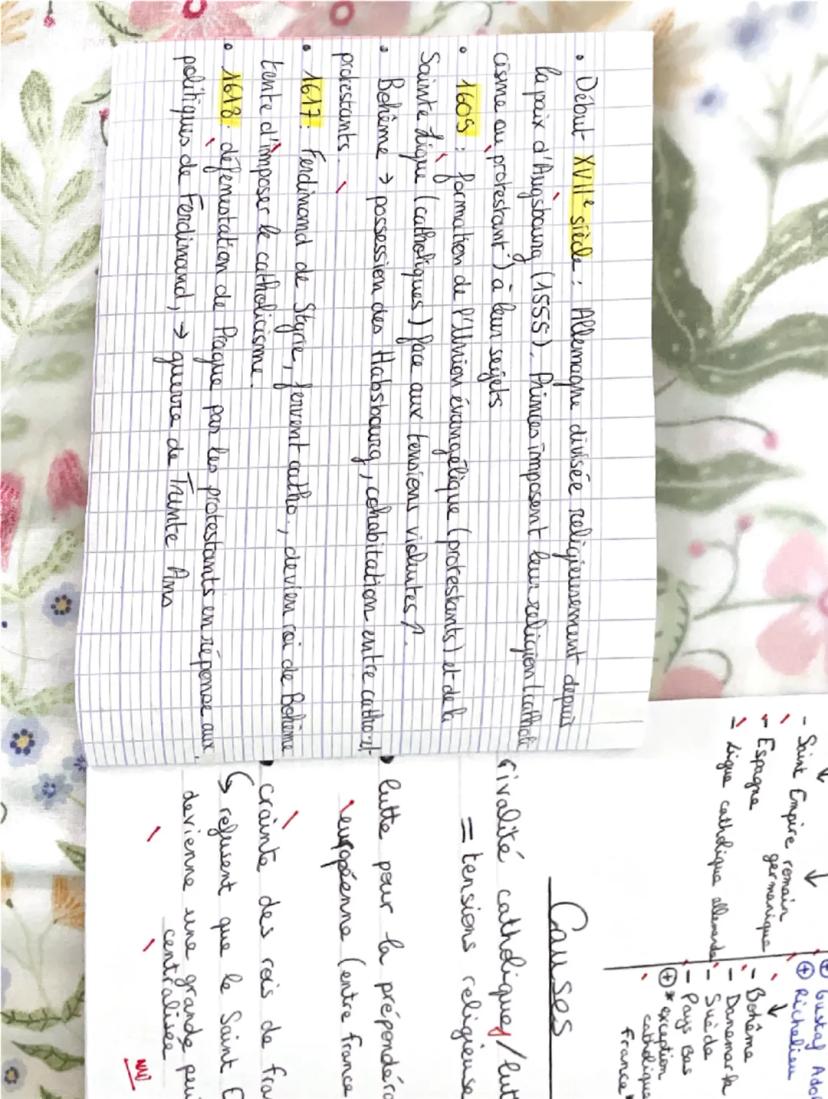 • Début XVIIe siècle : Allemagne divisée religieusement depuis
la paix d'Augsbourg (1555). Princes imposent leur religion (catholi
cisme ou protestant) à leur sujets
• 1609 : formation de l'Union évangélique (protestants) et de la
Sainte Ligue (catholiques) face aux tensions violentes ↗.
• Bohême → possession des Habsbourg, cohabitation entre catho et
protestants.
• 1617 : Ferdinand de Styrie, fervent catho., devien roi de Bohême
tente d'imposer le catholicisme.
• 1618 : défenestration de Prague par les protestants en réponse aux
politiques de Ferdinand, → guerre de Trente Ans
↓
- Saint Empire romain
germanique
- Espagne
- Ligue catholique allemande
⊕ Gustaf Adol
⊕ Richelieu
↓
- Bohême
- Danemark
- Suède
- Pays Bas
⊕ * exception
catholique
France *
Causes
rivalité catholiques/lut
= tensions religieuse
• lutte pour la prépondéra
européenne (entre france
• crainte des rois de fra
↳ refusent que le Saint E
devienne une grande pui
centralisée